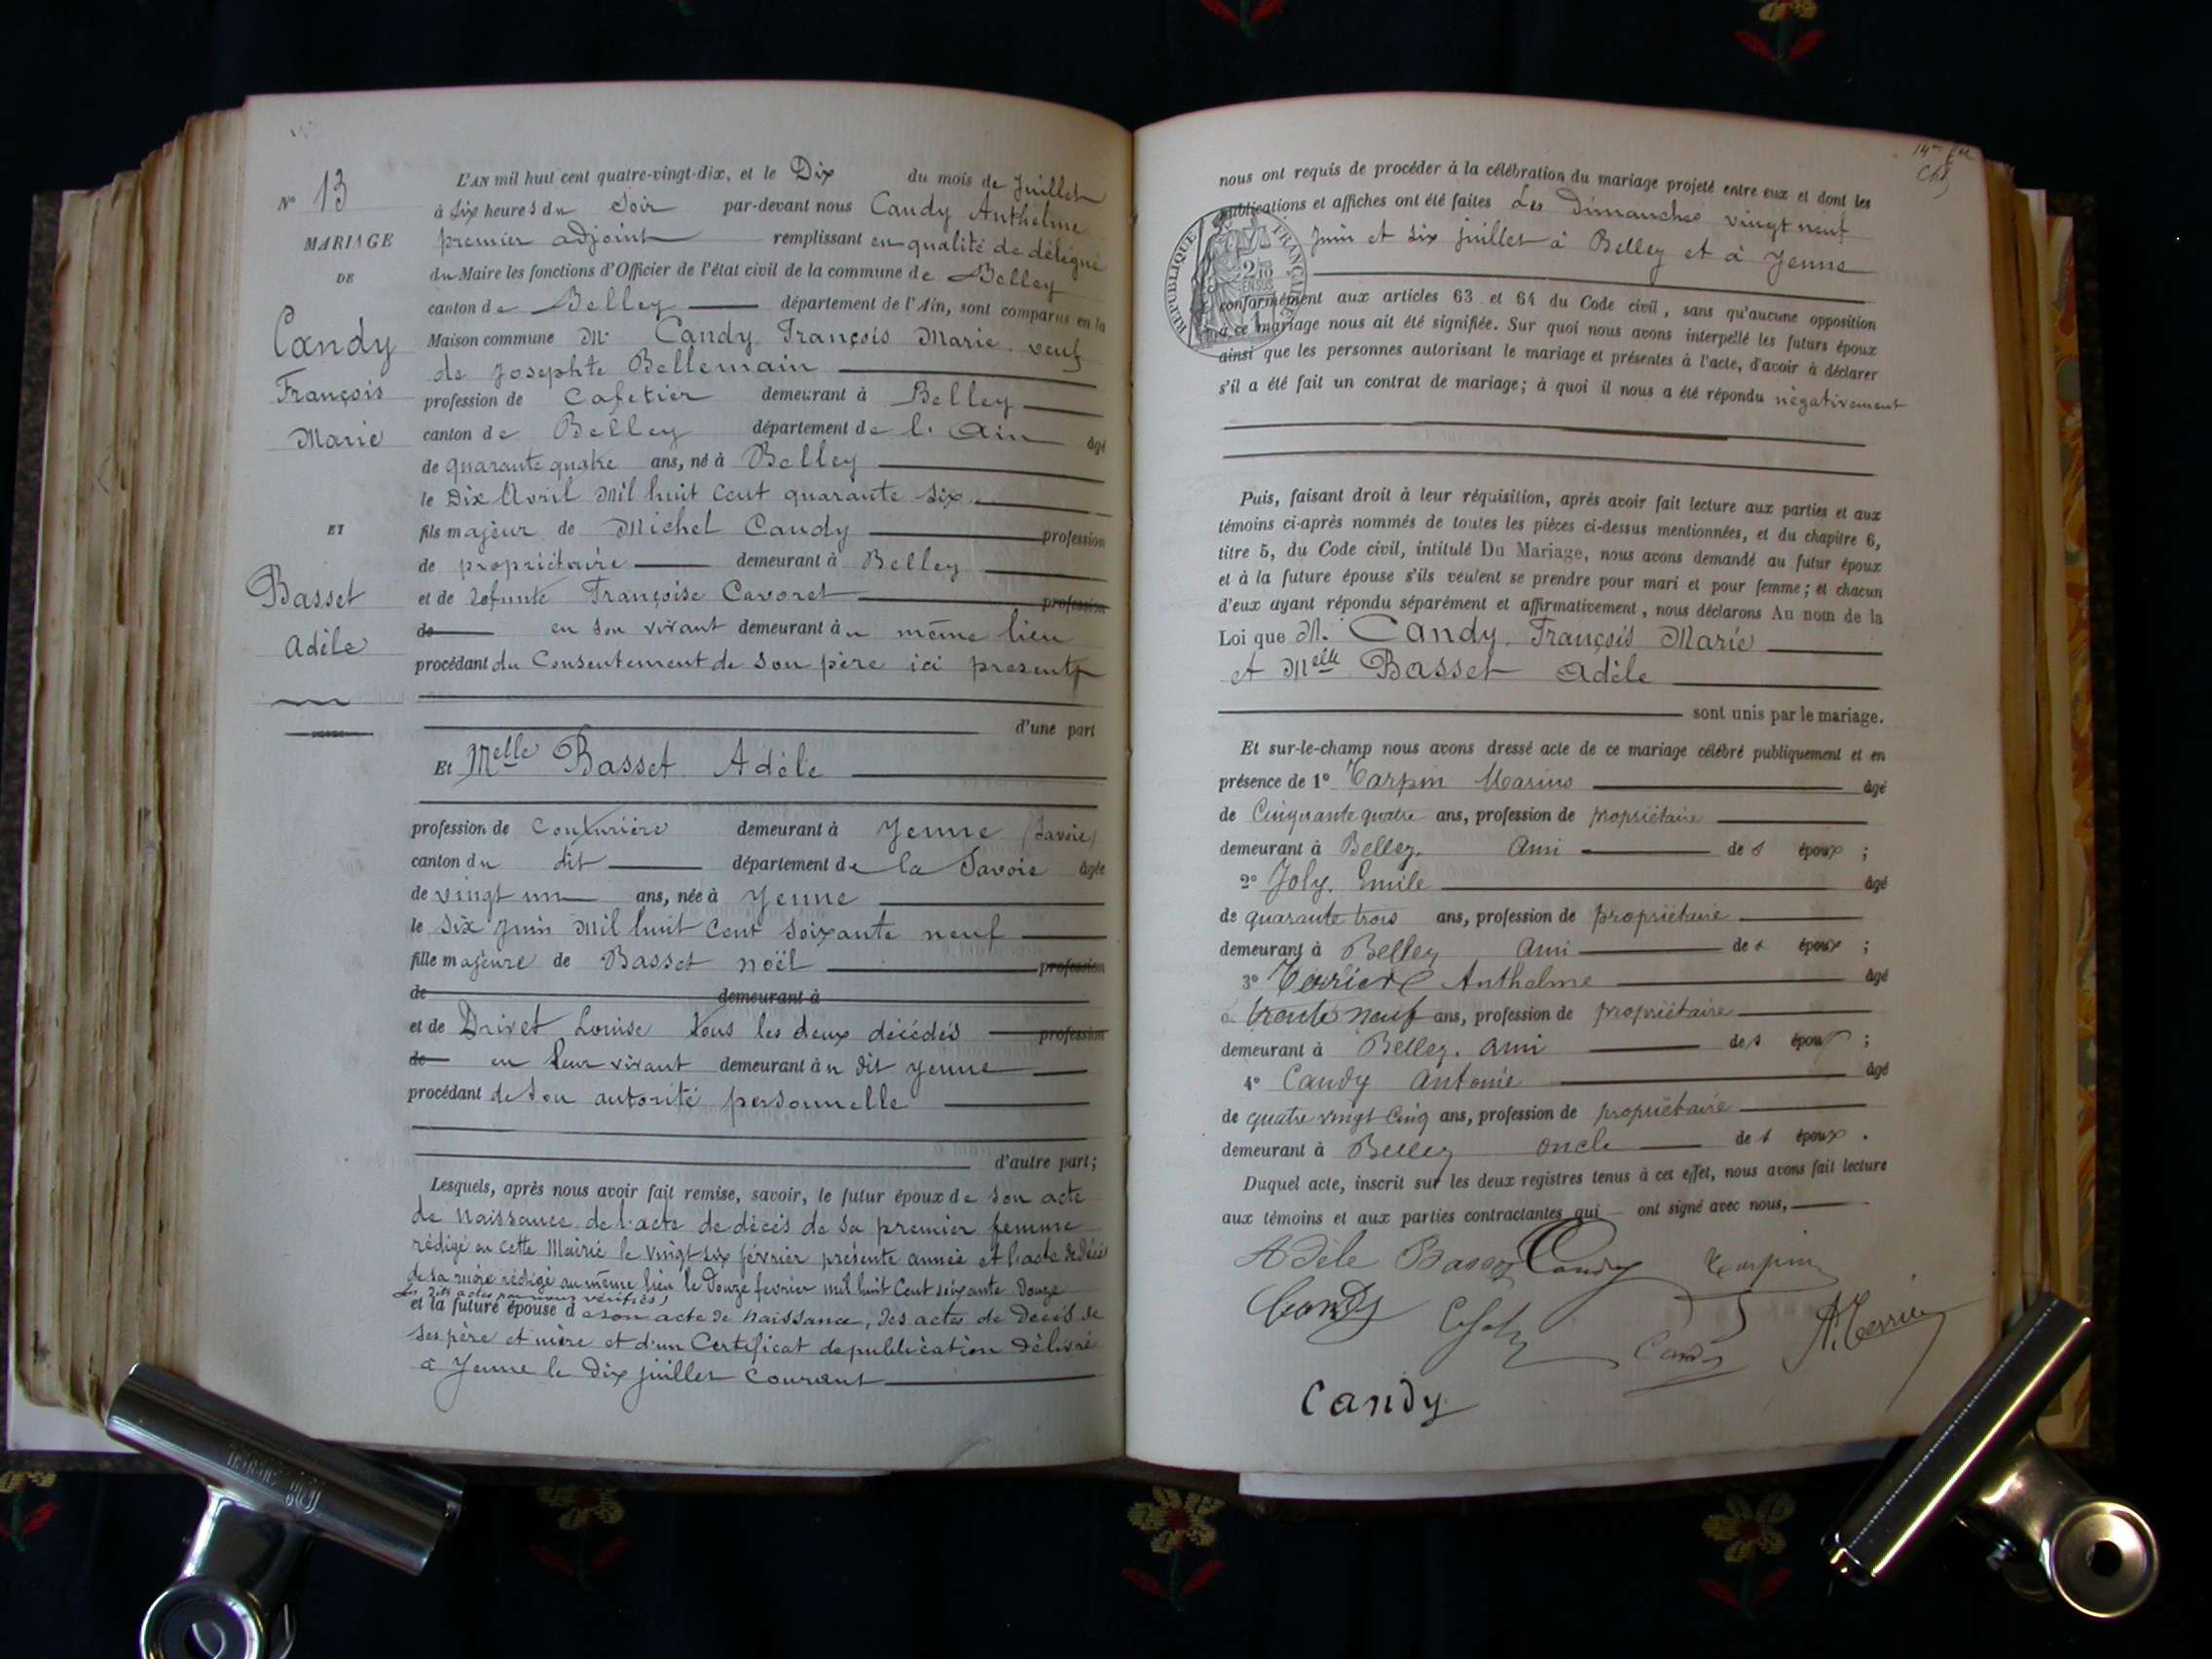 N° 13
MARIAGE
DE
Candy
François
Marie
ET
Basset
Adèle
L'AN mil huit cent quatre-vingt-dix, et le Dix du mois de Juillet
à six heures du Soir par-devant nous Candy Anthelme
premier adjoint remplissant en qualité de délégué
du Maire les fonctions d'Officier de l'état civil de la commune de Belley
canton de Belley département de l'Ain, sont comparus en la
Maison commune Mr Candy François Marie veuf
de Josephte Bellemain
profession de Cafetier demeurant à Belley
canton de Belley département de l'Ain âgé
de quarante quatre ans, né à Belley
le Dix Avril mil huit cent quarante six
fils majeur de Michel Candy profession
de propriétaire demeurant à Belley
et de defunte Françoise Cavoret profession
de en son vivant demeurant au même lieu
procédant du Consentement de son père ici present
d'une part
Et Melle Basset Adèle
profession de Couturière demeurant à Yenne (Savoie)
canton du dit département de la Savoie âgée
de vingt un ans, née à Yenne
le six Juin mil huit cent soixante neuf
fille majeure de Basset noël profession
de demeurant à
et de Drivet Louise tous les deux décédés profession
de en leur vivant demeurant au dit Yenne
procédant de son autorité personnelle
d'autre part;
Lesquels, après nous avoir fait remise, savoir, le futur époux de son acte
de Naissance de l'acte de décès de sa premier femme
rédigé en cette Mairie le vingt six février presente année et l'acte de décès
de sa mère rédigé au même lieu le Douze fevrier mil huit Cent soixante Douze
Les dits actes par nous vérifiés,
et la future épouse de son acte de naissance, des actes de Décès de
ses père et mère et d'un Certificat de publication délivré
à Yenne le Dix juillet Courant
nous ont requis de procéder à la célébration du mariage projeté entre eux et dont les
publications et affiches ont été faites Les Dimanches vingt neuf
Juin et six juillet à Belley et à Yenne
RÉPUBLIQUE FRANÇAISE
conformément aux articles 63 et 64 du Code civil, sans qu'aucune opposition
à ce mariage nous ait été signifiée. Sur quoi nous avons interpellé les futurs époux
ainsi que les personnes autorisant le mariage et présentes à l'acte, d'avoir à déclarer
s'il a été fait un contrat de mariage; à quoi il nous a été répondu négativement
Puis, faisant droit à leur réquisition, après avoir fait lecture aux parties et aux
témoins ci-après nommés de toutes les pièces ci-dessus mentionnées, et du chapitre 6,
titre 5, du Code civil, intitulé Du Mariage, nous avons demandé au futur époux
et à la future épouse s'ils veulent se prendre pour mari et pour femme; et chacun
d'eux ayant répondu séparément et affirmativement, nous déclarons Au nom de la
Loi que M. Candy, François Marie
et Melle Basset Adèle
sont unis par le mariage.
Et sur-le-champ nous avons dressé acte de ce mariage célébré publiquement et en
présence de 1° Tarpin Marius âgé
de Cinquante quatre ans, profession de propriétaire
demeurant à Belley. Ami des époux ;
2° Joly. Emile âgé
de quarante trois ans, profession de propriétaire
demeurant à Belley ami des époux ;
3° Terrière Anthelme âgé
trente neuf ans, profession de propriétaire
demeurant à Belley. ami des époux ;
4° Candy Antoine âgé
de quatre vingt Cinq ans, profession de propriétaire
demeurant à Belley oncle de l époux .
Duquel acte, inscrit sur les deux registres tenus à cet effet, nous avons fait lecture
aux témoins et aux parties contractantes qui ont signé avec nous,
Adèle Basset Candy Tarpin
Candy Candy
Candy